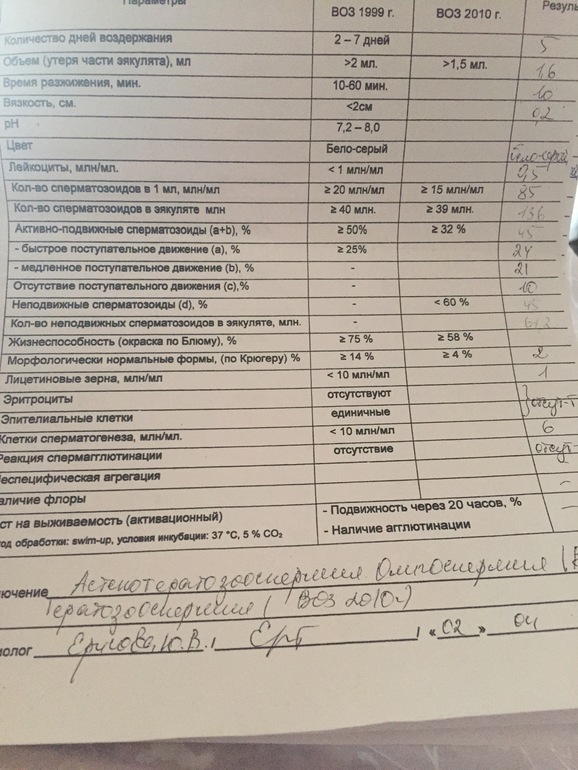 Параметры ВОЗ 1999 г. ВОЗ 2010 г. Резуль
Количество дней воздержания 2 – 7 дней 5
Объем (утеря части эякулята), мл >2 мл. >1,5 мл. 1,6
Время разжижения, мин. 10-60 мин. 10
Вязкость, см. <2см 0,2
pH 7,2 – 8,0
Цвет Бело-серый бело-серый
Лейкоциты, млн/мл. < 1 млн/мл 0,5
Кол-во сперматозоидов в 1 мл, млн/мл ≥ 20 млн/мл ≥ 15 млн/мл 85
Кол-во сперматозоидов в эякуляте млн ≥ 40 млн. ≥ 39 млн. 136
Активно-подвижные сперматозоиды (a+b), % ≥ 50% ≥ 32 % 45
- быстрое поступательное движение (a), % ≥ 25% 24
- медленное поступательное движение (b), % - 21
Отсутствие поступательного движения (c),% - 10
Неподвижные сперматозоиды (d), % - < 60 % 45
Кол-во неподвижных сперматозоидов в эякуляте, млн. - 61,2
Жизнеспособность (окраска по Блюму), % ≥ 75 % ≥ 58 %
Морфологически нормальные формы, (по Крюгеру) % ≥ 14 % ≥ 4 % 2
Лицетиновые зерна, млн/мл < 10 млн/мл 1
Эритроциты отсутствуют
Эпителиальные клетки единичные отсут-т
Клетки сперматогенеза, млн/мл. < 10 млн/мл 6
Реакция спермагглютинации отсутствие отсут-
еспецифическая агрегация -
аличие флоры -
ст на выживаемость (активационный) - Подвижность через 20 часов, % -
од обработки: swim-up, условия инкубации: 37 °C, 5 % CO₂ - Наличие агглютинации
лючение Астенотератозооспермия
Тератозооспермия ( ВОЗ 2010г)
олог / «02» 04